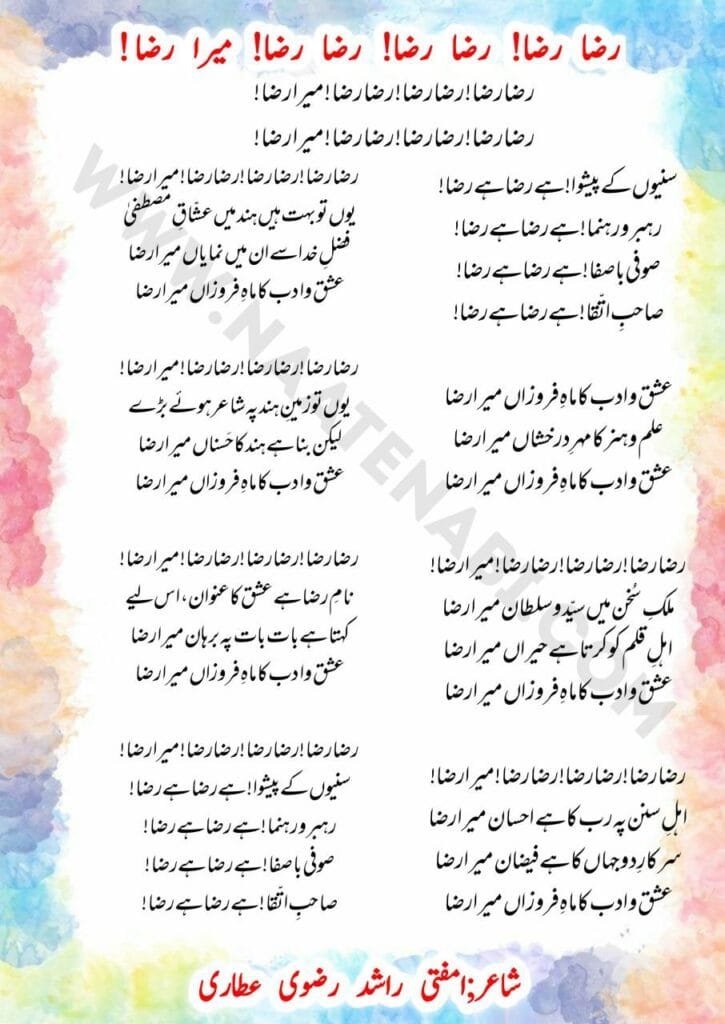 رضا رضا! رضا رضا! رضا رضا! میرا رضا!
رضا رضا! رضا رضا! رضا رضا! میرا رضا!
رضا رضا! رضا رضا! رضا رضا! میرا رضا!
سنیوں کے پیشوا! ہے رضا ہے رضا!
رہبر و رہنما! ہے رضا ہے رضا!
صوفی باصفا! ہے رضا ہے رضا!
صاحبِ اتّقا! ہے رضا ہے رضا!
عشق و ادب کا ماہِ فروزاں میرا رضا
علم و ہنر کا مہرِ درخشاں میرا رضا
عشق و ادب کا ماہِ فروزاں میرا رضا
رضا رضا! رضا رضا! رضا رضا! میرا رضا!
ملکِ سُخن میں سیّد و سلطان میرا رضا
اہلِ قلم کو کرتا ہے حیراں میرا رضا
عشق و ادب کا ماہِ فروزاں میرا رضا
رضا رضا! رضا رضا! رضا رضا! میرا رضا!
اہلِ سنن پہ رب کا ہے احسان میرا رضا
سرکارِ دوجہاں کا ہے فیضان میرا رضا
عشق و ادب کا ماہِ فروزاں میرا رضا
رضا رضا! رضا رضا! رضا رضا! میرا رضا!
یوں تو بہت ہیں ہند میں عشّاقِ مصطفیٰ
فضلِ خدا سے ان میں نمایاں میرا رضا
عشق و ادب کا ماہِ فروزاں میرا رضا
رضا رضا! رضا رضا! رضا رضا! میرا رضا!
یوں تو زمینِ ہند پہ شاعر ہوئے بڑے
لیکن بنا ہے ہند کا حَسناں میرا رضا
عشق و ادب کا ماہِ فروزاں میرا رضا
رضا رضا! رضا رضا! رضا رضا! میرا رضا!
نامِ رضا ہے عشق کا عنوان، اس لیے
کہتا ہے بات بات پہ برہان میرا رضا
عشق و ادب کا ماہِ فروزاں میرا رضا
رضا رضا! رضا رضا! رضا رضا! میرا رضا!
سنیوں کے پیشوا! ہے رضا ہے رضا!
رہبر و رہنما! ہے رضا ہے رضا!
صوفی باصفا! ہے رضا ہے رضا!
صاحبِ اتّقا! ہے رضا ہے رضا!
شاعر:مفتی راشد رضوی عطاری
WWW.NAATENABI.COM